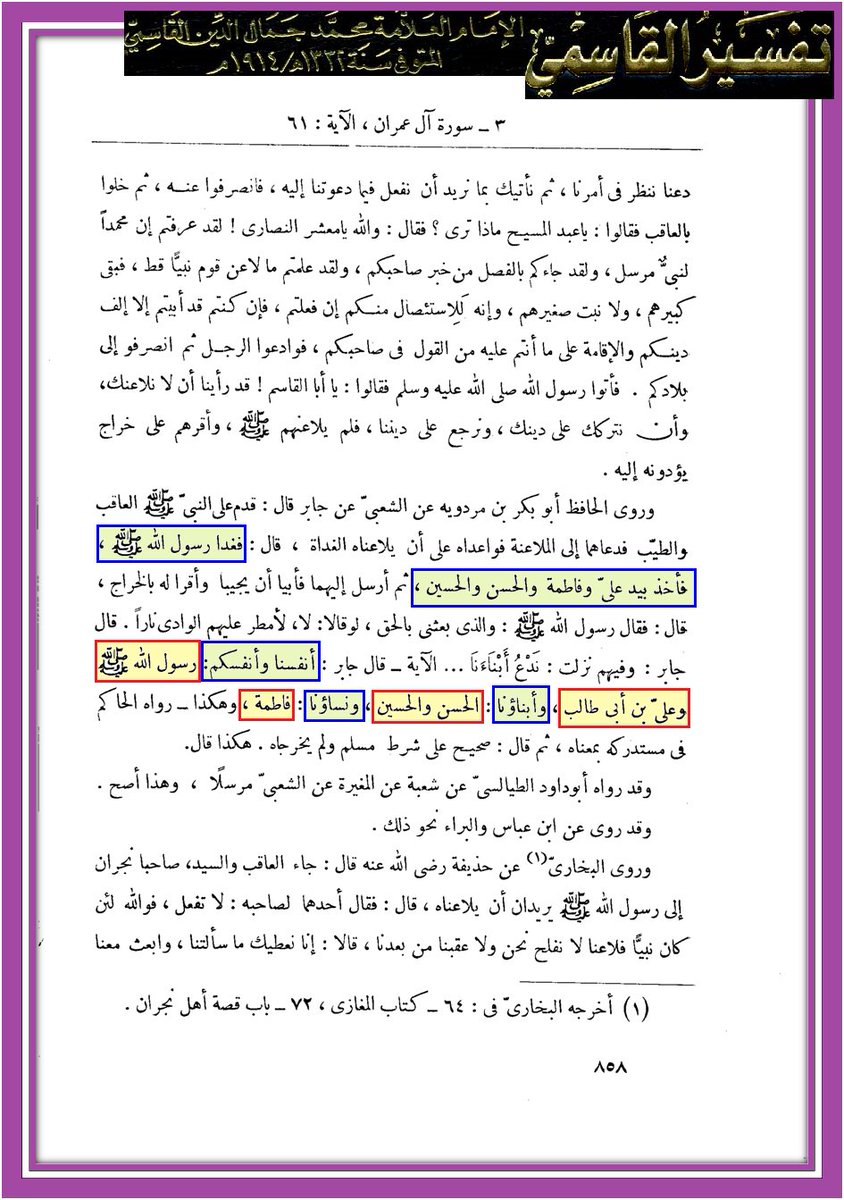 تفسير القاسمي
الإمام العلامة محمد جمال الدين القاسمي
المتوفى سنة ١٣٣٢ه/١٩١٤م
٣ – سورة آل عمران ، الآية : ٦١
دعنا ننظر فى أمرنا ، ثم نأتيك بما نريد أن نفعل فيما دعوتنا إليه ، فانصرفوا عنه ، ثم خلوا
بالعاقب فقالوا : ياعبد المسيح ماذا ترى ؟ فقال : والله يامعشر النصارى ! لقد عرفتم إن محمداً
لنبىٌّ مرسل ، ولقد جاءكم بالفصل من خبر صاحبكم ، ولقد علمتم ما لاعن قوم نبيًّا قط ، فبقى
كبيرهم ، ولا نبت صغيرهم ، وإنه لَلِاستئصال منكم إن فعلتم ، فإن كنتم قد أبيتم إلا إلف
دينكم والإقامة على ما أنتم عليه من القول فى صاحبكم ، فوادعوا الرجل ثم انصرفو إلى
بلادكم . فأتوا رسول الله صلى الله عليه وسلم فقالوا : يا أبا القاسم ! قد رأينا أن لا نلاعنك،
وأن نتركك على دينك ، ونرجع على ديننا ، فلم يلاعنهم ﷺ ، وأقرهم على خراج
يؤدونه إليه .
وروى الحافظ أبو بكر بن مردويه عن الشعبىّ عن جابر قال : قدم على النبىّ ﷺ العاقب
والطيّب فدعاهما إلى الملاعنة فواعداه على أن يلاعناه الغداة ، قال : فغدا رسول الله ﷺ ،
فأخذ بيد علىّ وفاطمة والحسن والحسين ، ثم أرسل إليهما فأبيا أن يجيبا وأقرا له بالخراج ،
قال : فقال رسول الله ﷺ : والذى بعثنى بالحق ، لوقالا: لا، لأمطر عليهم الوادى ناراً . قال
جابر : وفيهم نزلت : نَدْعُ أَبْنَاءَنَا ... الآية – قال جابر : أنفسنا وأنفسكم: رسول الله ﷺ
وعلىّ بن أبى طالب ، وأبناؤنا : الحسن والحسين ، ونساؤنا : فاطمة ، وهكذا – رواه الحاكم
فى مستدركه بمعناه ، ثم قال : صحيح على شرط مسلم ولم يخرجاه . هكذا قال.
وقد رواه أبوداود الطيالسىّ عن شعبة عن المغيرة عن الشعبىّ مرسلًا ، وهذا أصح .
وقد روى عن ابن عباس والبراء نحو ذلك .
وروى البخارىّ(١) عن حذيفة رضى الله عنه قال : جاء العاقب والسيد، صاحبا نجران
إلى رسول الله ﷺ يريدان أن يلاعناه ، قال : فقال أحدهما لصاحبه : لا تفعل ، فوالله لئن
كان نبيًّا فلاعنا لا نفلح نحن ولا عقبنا من بعدنا ، قالا : إنا نعطيك ما سألتنا ، وابعث معنا
(١) أخرجه البخارىّ فى : ٦٤ – كتاب المغازى ، ٧٢ – باب قصة أهل نجران .
٨٥٨